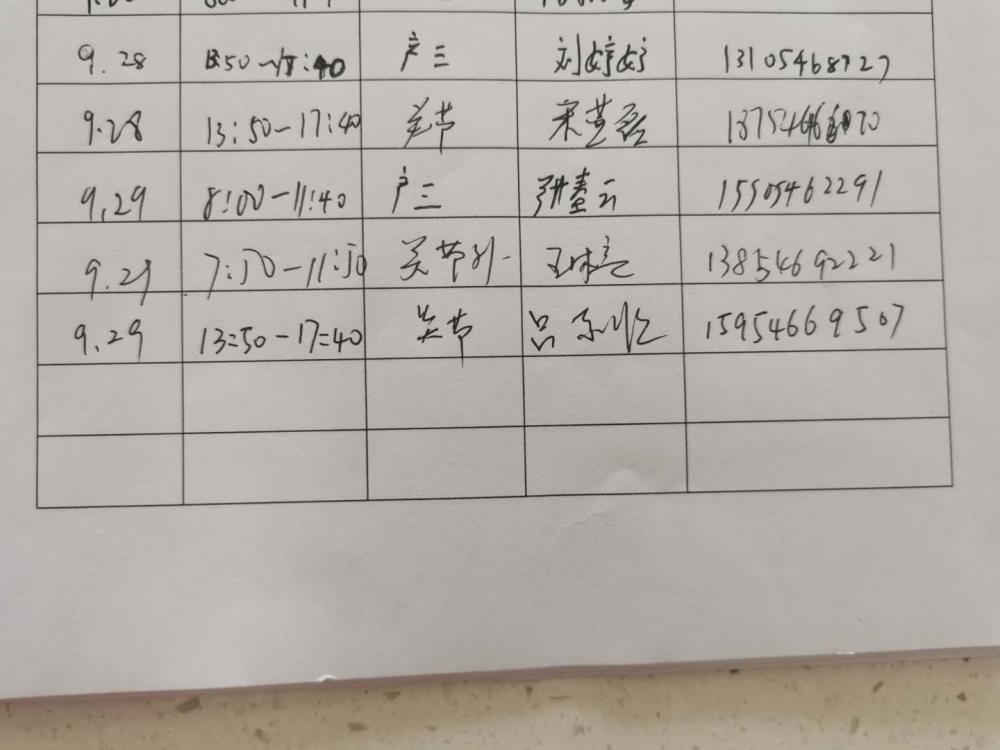 9.28 13:50-17:40 产三 刘婷婷 13105468727
9.28 13:50-17:40 关节 宋萱磊
9.29 8:00-11:40 产三 张蕓云 15505462291
9.29 7:50-11:50 关节外一 13854692221
9.29 13:50-17:40 关节 吕 15954669507